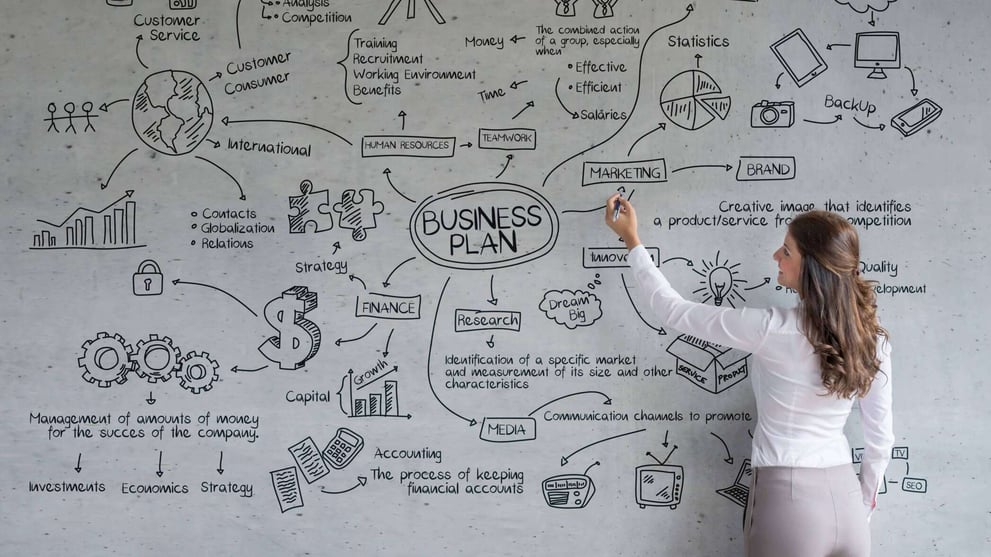 Analysis
• Competition
Customer
Service
Customer
Consumer
International
• Contacts
• Globalization
• Relations
Training
Recruitment
Working Environment
Benefits
HUMAN RESOURCES
TEAMWORK
Money
Time
The combined action
of a group, especially
when
• Effective
• Efficient
Salaries
Statistics
BackUp
MARKETING
BRAND
Creative image that identifies
a product/service ompetition
BUSINESS
PLAN
Innova
Quality
Dream
Big
SERVICE
PRODUCT
Strategy
FINANCE
Research
Identification of a specific market
and measurement of its size and other
characteristics
Growth
Capital
Management of amounts of money
for the succes of the company.
Investments
Economics
Strategy
Accounting
The process of keeping
financial accounts
MEDIA
Communication channels to promote
TV
SEO